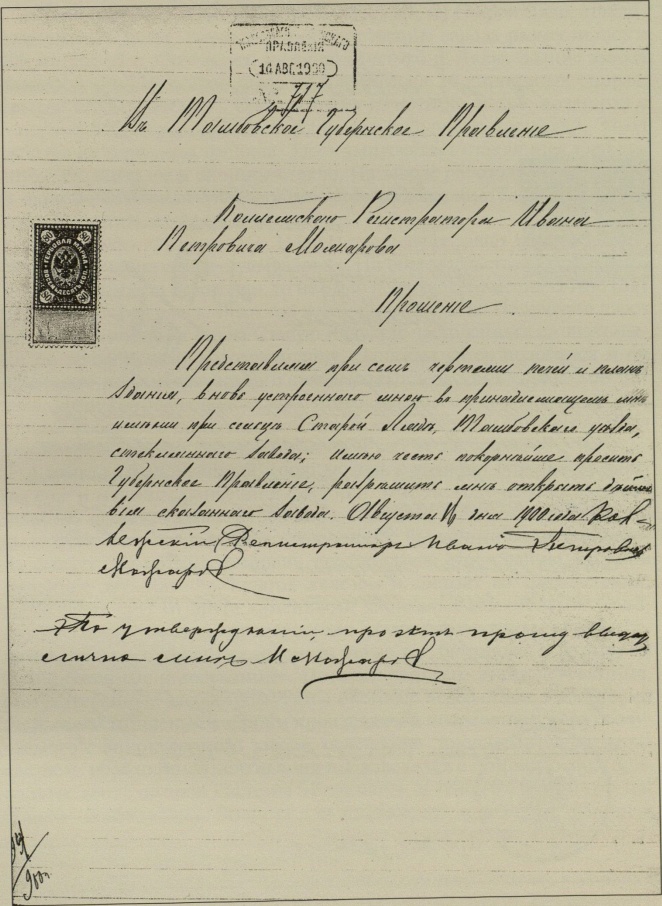 ПРАВЛЕНІЯ
14 АВГ. 1900
717
Въ Тамбовское Губернское Правленіе
Коллежскаго Регистратора Ивана
Петровича Мамарова
Прошеніе
ГЕРБОВАЯ МАРКА
80
Представляя при семъ чертежи печей и планъ
зданія, вновь устроеннаго мною въ принадлежащемъ мнѣ
имѣніи при сельцѣ Старой Лядѣ, Тамбовскаго уѣзда,
стекляннаго завода; имѣю честь покорнѣйше просить
Губернское Правленіе, разрѣшить мнѣ открыть дѣйст
віе сказаннаго завода. Августа дня 1900 года Кол
лежскій Регистраторъ Иванъ Петровичъ
По утвержденіи, проэктъ прошу выдать
лично мнѣ И